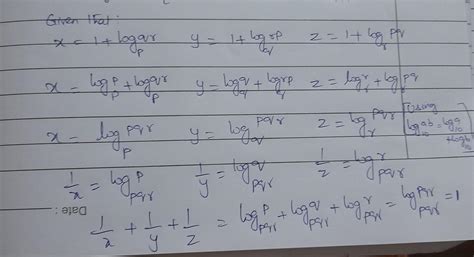 Given that :
x = 1 + log_p qr    y = 1 + log_q rp    z = 1 + log_r pq
x = log_p p + log_p qr    y = log_q q + log_q rp    z = log_r r + log_r pq
x = log_p pqr    y = log_q pqr    z = log_r pqr    [Using log_10 ab = log_10 a + log_10 b]
1/x = log_pqr p    1/y = log_pqr q    1/z = log_pqr r
1/x + 1/y + 1/z = log_pqr p + log_pqr q + log_pqr r = log_pqr pqr = 1
Date :